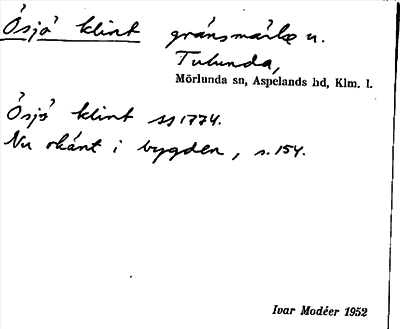 Ösjö klint gränsmärke u.
Tulunda,
Mörlunda sn, Aspelands hd, Klm. l.
Ösjö klint ss 1774.
Nu okänt i bygden, s. 154.
Ivar Modéer 1952